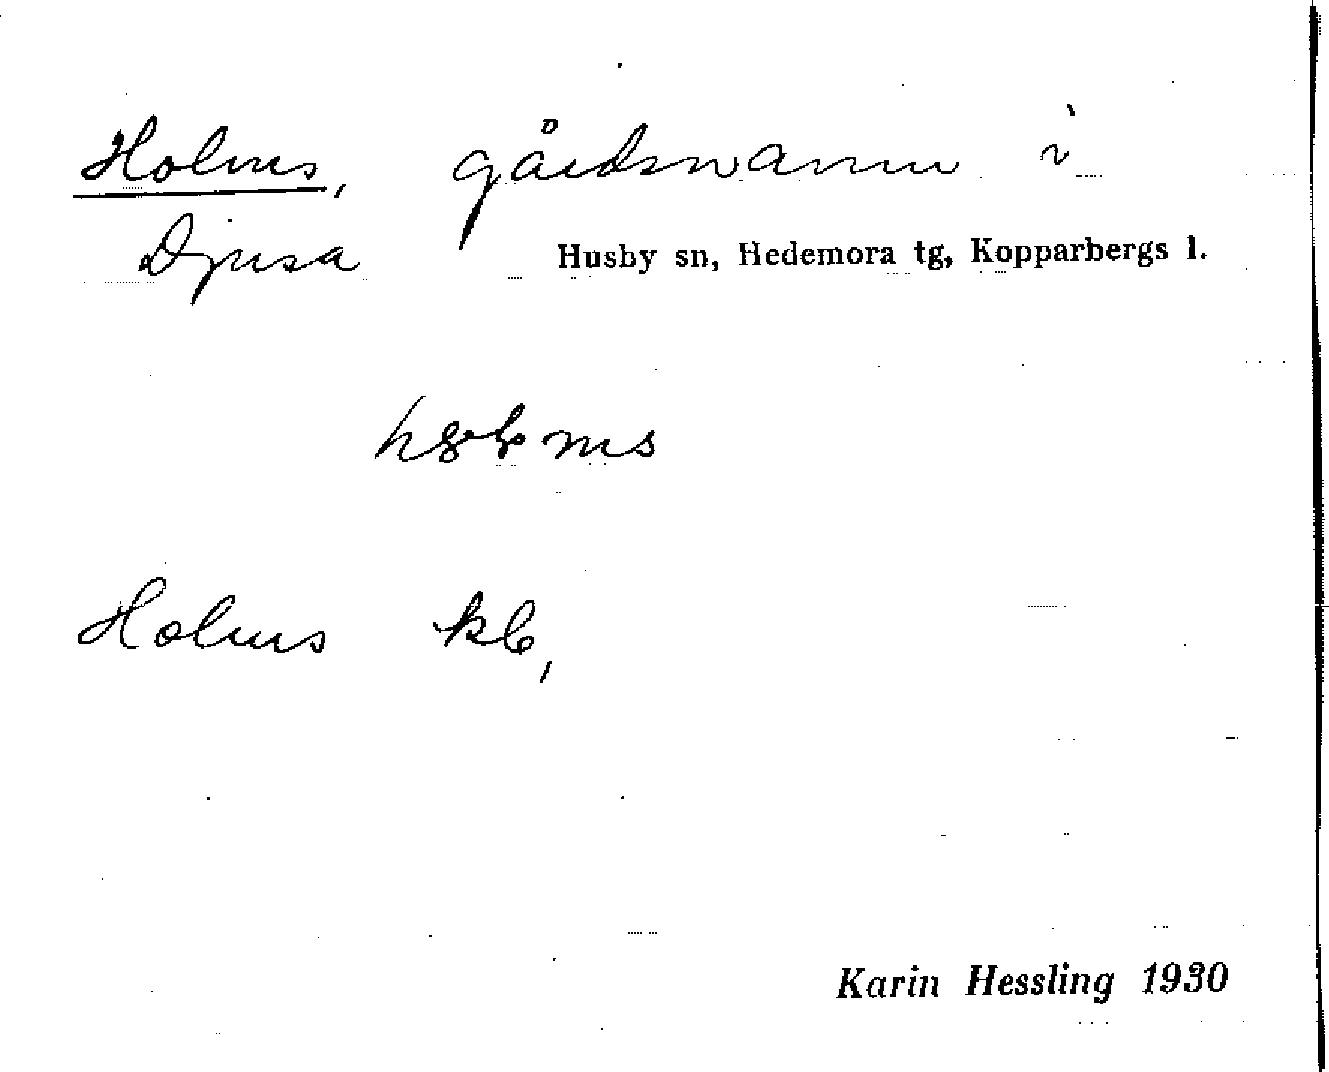 Holms, gårdsnamn i
Djusa Husby sn, Hedemora tg, Kopparbergs l.
Holms kb,
Karin Hessling 1930